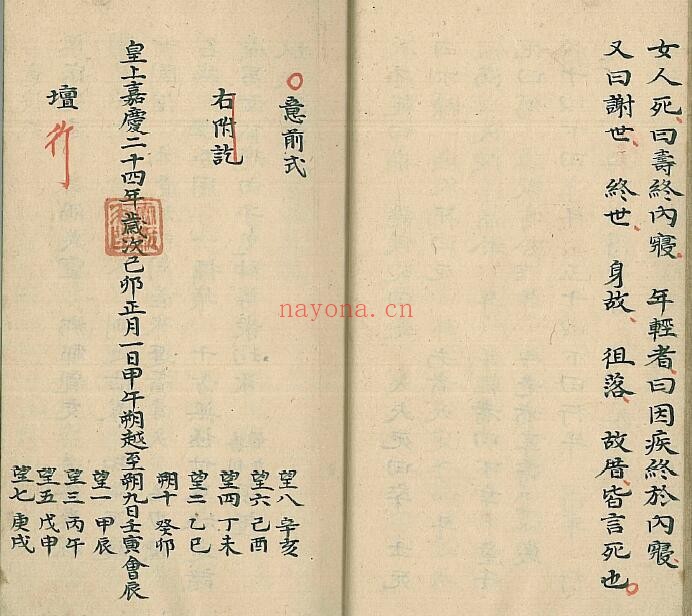 女人死、曰壽終內寢 年輕者、曰因疾終於內寢、
又曰謝世、終世、身故、徂落、故厝、皆言死也。
○意前式
右附訖
皇上嘉慶二十四年歲次己卯正月一日甲午朔越至朔九日壬寅會辰
壇 行
望八 辛亥
望六 己酉
望四 丁未
望二 乙巳
朔十 癸卯
望一 甲辰
望三 丙午
望五 戊申
望七 庚戌
nayona.cn